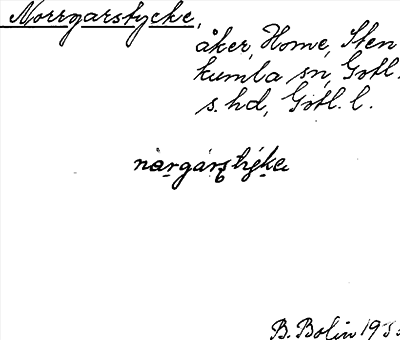 Norrgarstycke,
åker, Home, Sten
kumla sn, Gotl.
s. hd, Gotl. l.
nàrgárstýke
B. Bolin